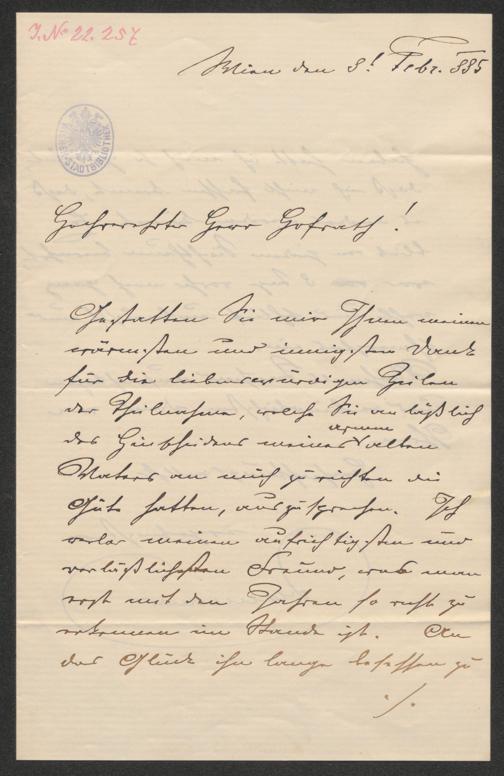 J. No 22.257
Wien den 8t Febr. 885
STADTBIBLIOTHEK
Hochverehrter Herr Hofrath!
Gestatten Sie mir Ihnen meinen
wärmsten und innigsten Dank
für die liebenswürdigen Zeilen
der Theilnahme, welche Sie anläßlich
des Hinscheidens meines armen alten
Vaters an mich zu richten die
Güte hatten, auszusprechen. Ich
verlor meinen aufrichtigsten und
verläßlichsten Freund, was man
erst mit den Jahren so recht zu
erkennen im Stande ist. An
das Glück ihn lange besessen zu
./.